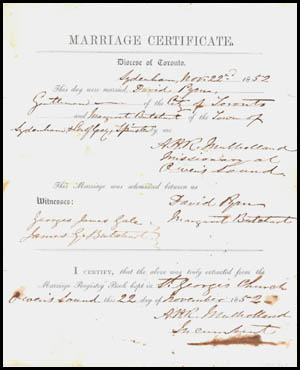 MARRIAGE CERTIFICATE.
Diocese of Toronto.
Sydenham, Nov. 22nd 1852
This day were married David
Gentleman of the City of Toronto
and Margaret of the Town of
Sydenham by me
A.H.R. Mulholland
Missionary at
Owen Sound
This Marriage was solemnized between us
David
Witnesses:
George Jones Gale
Margaret
James G.
I CERTIFY, that the above was truly extracted from the
Marriage Registry Book kept in St. George's Church
Owen Sound this 22 day of November 1852
A.H.R. Mulholland
Incumbent